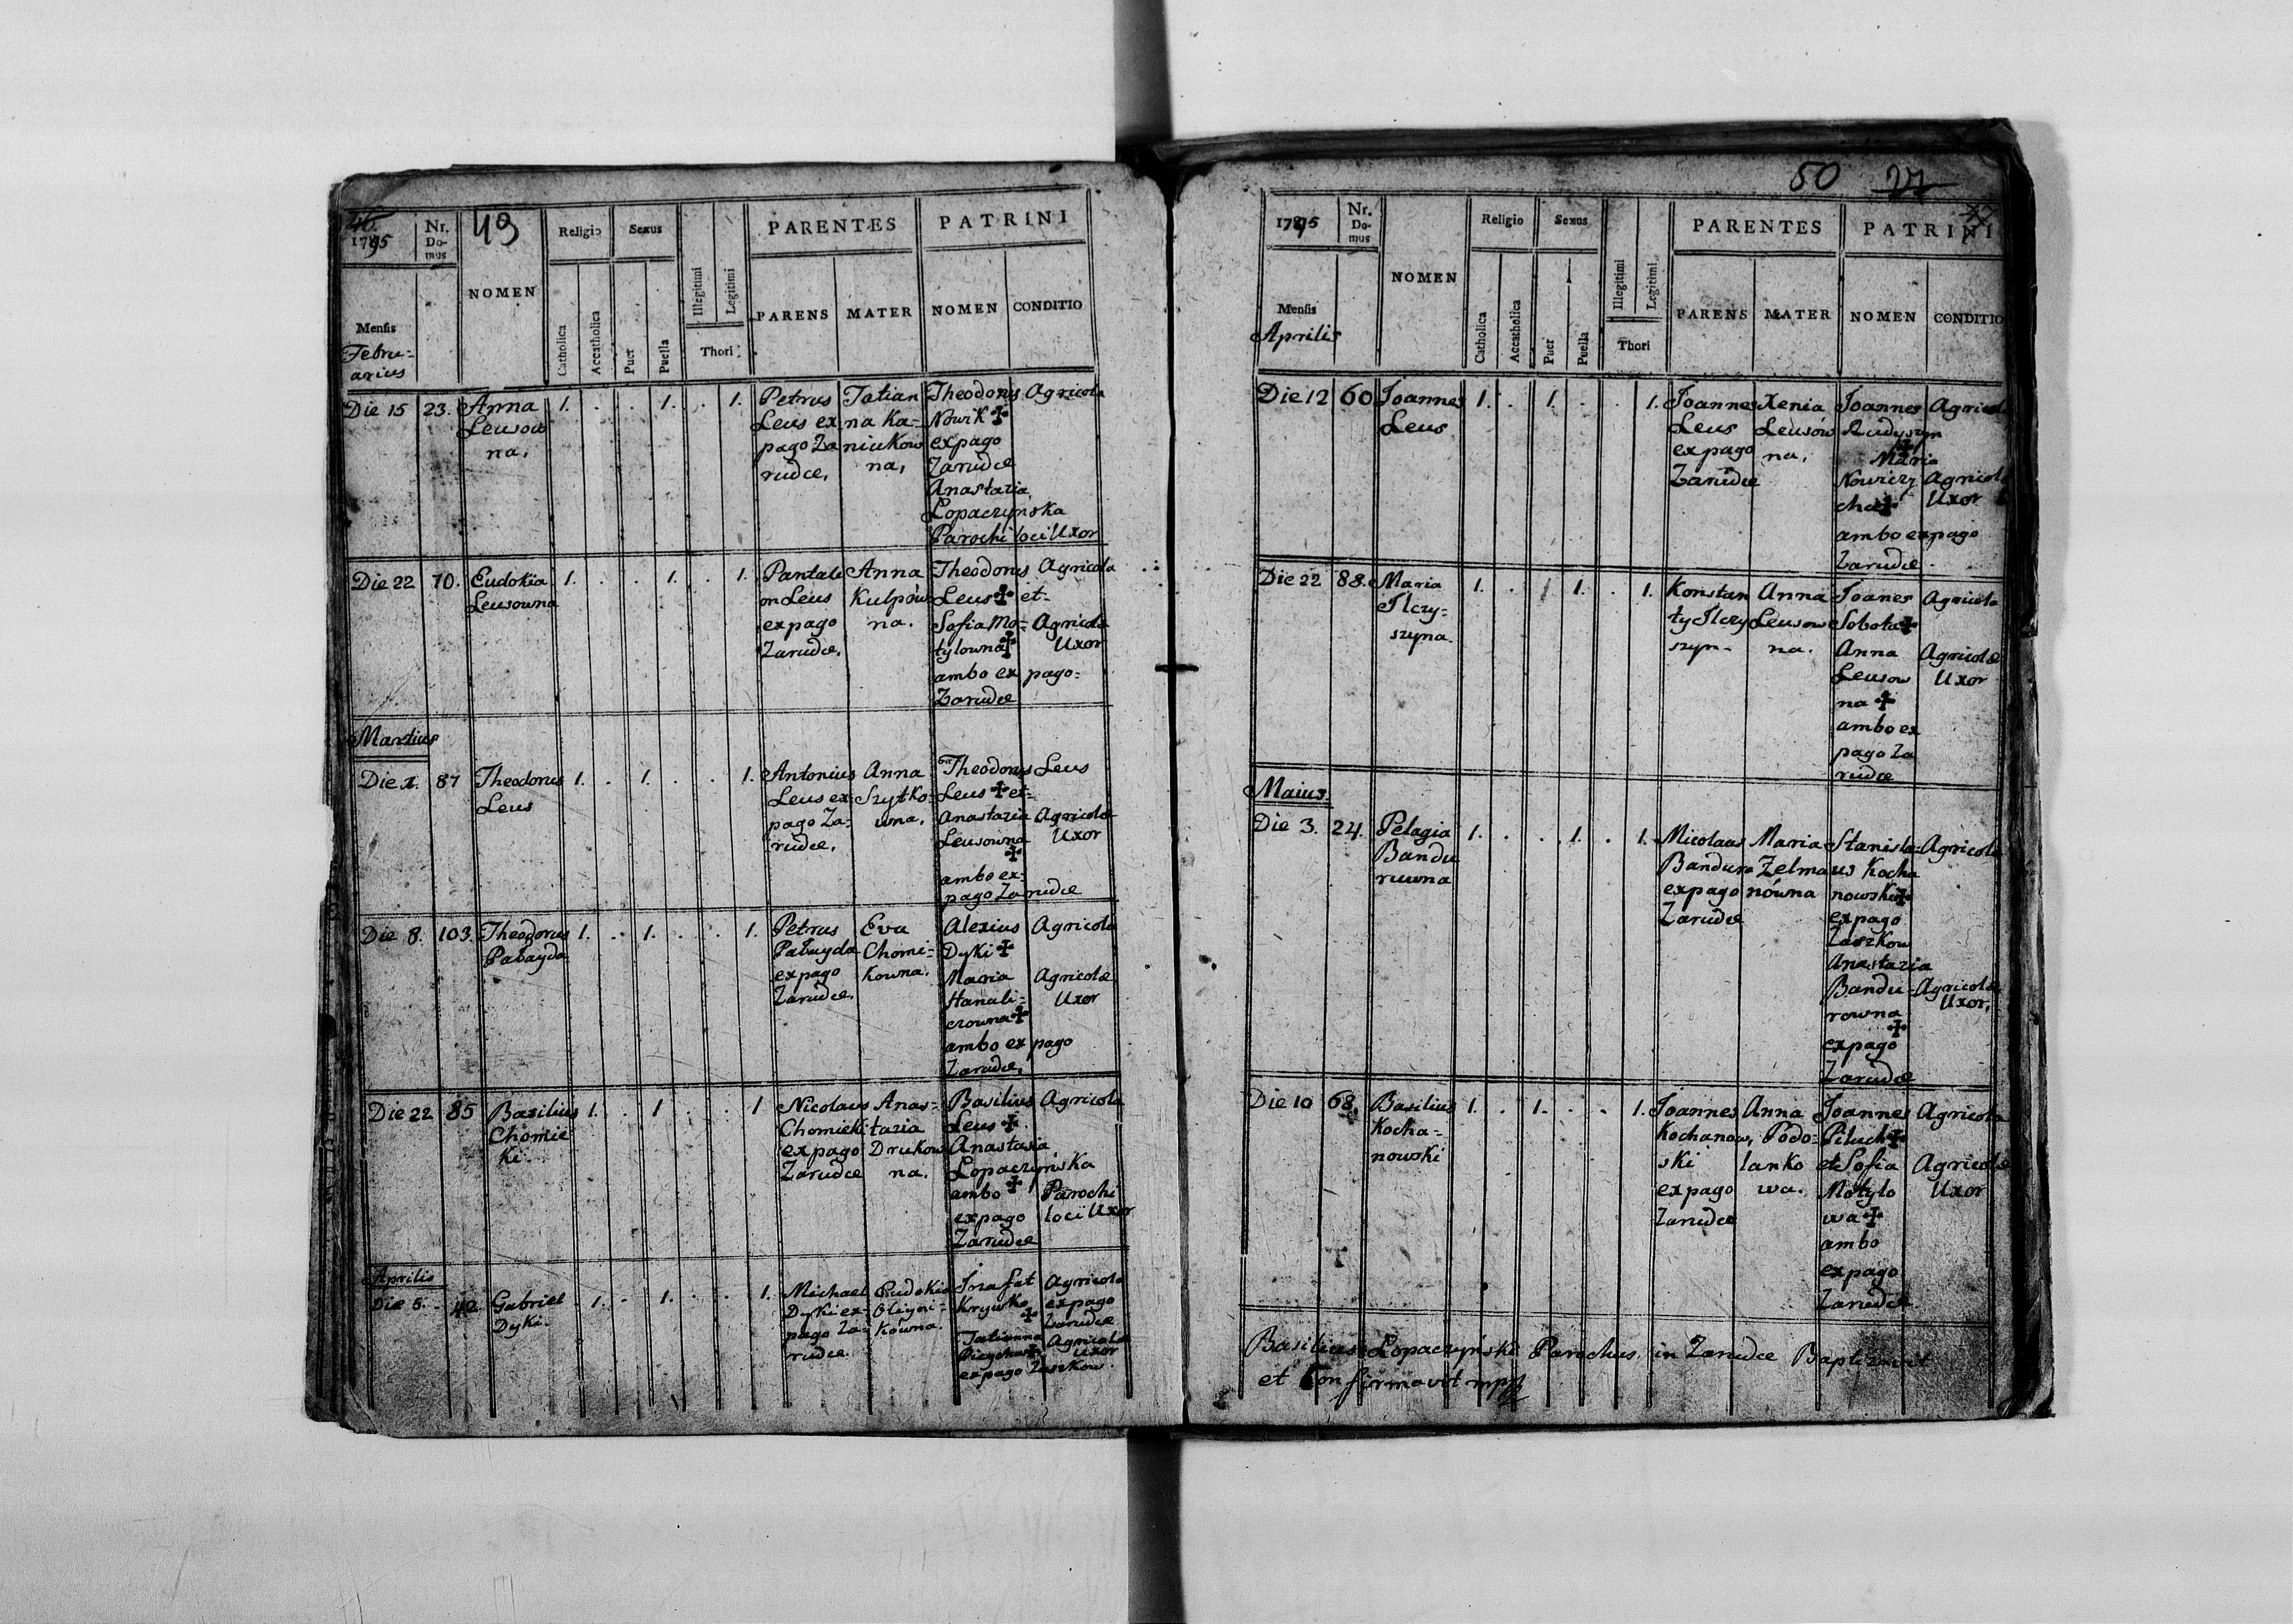 46.
1795
Nr.
Do-
mus
49
NOMEN
Religio
Sexus
Catholica
Accatholica
Puer
Puella
Illegitimi
Legitimi
Thori
PARENTES
PATRINI
PARENS
MATER
NOMEN
CONDITIO
Mensis
Febru-
arius
Die 15
23.
Anna
Leusow
na.
1.
.
.
1.
.
1.
Petrus
Leus ex
pago Za
rudce.
Tatian
na Ka-
niukow
na,
Theodorus
Nowik ✠
ex pago
Zarudce
Anastazia
Lopaczynska
Parochi loci Uxor
Agricola
Die 22
70.
Eudokia
Leusowna
1.
.
.
1.
.
1.
Pantale
on Leus
ex pago
Zarudce.
Anna
Kulpów
na.
Theodorus
Leus ✠ et-
Sofia Mo-
tylowna ✠
ambo ex pago-
Zarudce
Agricola
Agricolæ
Uxor
Martius
Die 1.
87
Theodorus
Leus
1.
.
1.
.
.
1.
Antonius
Leus ex
pago Za-
rudce.
Anna
Szytko-
wna.
Theodorus Leus
Leus ✠ et-
Anastazia
Leusowna
✠
ambo ex-
pago Zarudce
Agricolæ
Uxor
Die 8.
103.
Theodorus
Pabayda
1.
.
1.
.
.
1.
Petrus
Pabayda
ex pago
Zarudce.
Eva
Chomi-
kowna.
Alexius
Dyki ✠
Maria
Hanali-
czowna ✠
ambo ex pago
Zarudce.
Agricola
Agricolæ
Uxor
Die 22
85
Basilius
Chomie
ki.
1.
.
1
.
.
1
Nicolaus
Chomieki
ex pago
Zarudce
Anas-
tazia
Drukow
na.
Basilius
Leus ✠
Anastasia
Lopaczyńska
ambo ✠
ex pago
Zarudce
Agricola
Parochi
loci Uxor
Aprilis
Die 5.
42
Gabriel
Dyki.
1.
.
1.
.
.
1.
Michael
Dyki ex-
pago Za-
rudce.
Eudokia
kowna.
Jozafat
Krywko
✠
Tatianna
ex pago Zaszkow.
Agricola
ex pago
Zarudce
Agricolæ
Uxor
50
27
1795
Nr.
Do-
mus
NOMEN
Religio
Sexus
Catholica
Accatholica
Puer
Puella
Illegitimi
Legitimi
Thori
PARENTES
PATRINI
PARENS
MATER
NOMEN
CONDITIO
Mensis
Aprilis
Die 12
60
Joannes
Leus
1.
.
1.
.
.
1.
Joannes
Leus
ex pago
Zarudce
Xenia
Leusów
na,
Joannes
Rudyszyn
✠
Maria
Nowiczy
cha ✠
ambo ex pago
Zarudce.
Agricola
Agricolæ
Uxor
Die 22
88.
Maria
Ilczy-
szyna.
1.
.
.
1.
.
1.
Konstan
ty Ilczy
szyn-
Anna
Leusow
na.
Joanes
Sobota ✠
Anna
Leusow
na ✠
ambo ex
pago Za
rudce
Agricola
Agricolæ
Uxor
Maius.
Die 3.
24.
Pelagia
Bandu
ruwna
1.
.
.
1.
.
1.
Nicolaus
Bandura
ex pago
Zarudce
Maria
Zelma
nówna
Stanisla-
us Kocha
nowski ✠
ex pago
Zaszkow
Anastazia
Bandu-
rowna
✠
ex pago
Zarudce
Agricola
Agricolæ
Uxor.
Die 10
68.
Basilius
Kocha-
nowski
1.
.
1.
.
.
1.
Joannes
Kochanow,
ski
ex pago
Zarudce
Anna
Podo-
lanko
wa.
Joannes
Piluch ✠
et Sofia
Motylo
wa ✠
ambo
ex pago
Zarudce
Agricola
Agricolæ
Uxor
Basilius Lopaczyński Parochus in Zarudce Baptizavit
et Confirmavit mpp